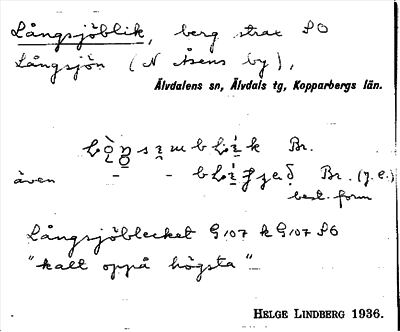 Långsjöblik, berg strax SO
Långsjön (N Åsens by),
Älvdalens sn, Älvdals tg, Kopparbergs län.
Br.
även - - Br. (y.e.)
best. form
Långsjöblecket G107 k G107 SO
"kalt oppå högsta"
HELGE LINDBERG 1936.